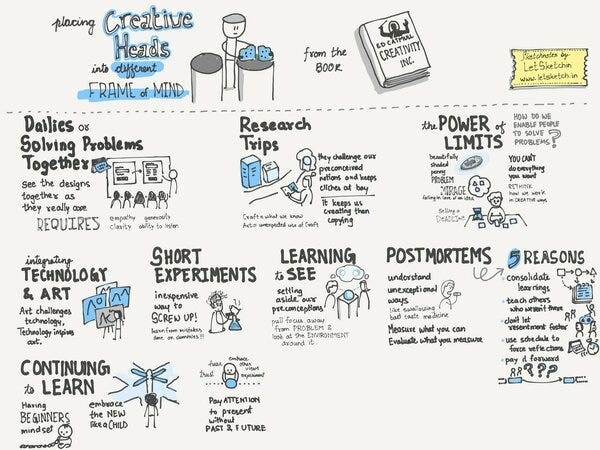 placing Creative
Heads
into different
FRAME of MIND
from the
BOOK
ED CATMULL
CREATIVITY
INC.
Sketchnotes by
LetSketchin
www.letsketch.in
Dailies or
Solving Problems
Together
See the designs
together as
they really are
REQUIRES
empathy
clarity
generosity
ability to listen
Research
Trips
they challenge our
preconceived
notions and keeps
cliches at bay
it keeps us
creating than
copying
Craft is what we know
Art is unexpected use of craft
the POWER of
LIMITS
HOW DO WE
ENABLE PEOPLE
TO SOLVE
PROBLEMS?
beautifully
shaded
penny
PROBLEM
MIRAGE
falling in love of an idea
setting a
DEADLINE
YOU CAN'T
do everything
you want
RETHINK
how we work
in CREATIVE ways
integrating
TECHNOLOGY
& ART
Art challenges
technology,
Technology inspires
art.
SHORT
EXPERIMENTS
inexpensive
way to
SCREW UP!
learn from mistakes
LEARNING
to SEE
setting
aside our
preconceptions
pull focus away
from PROBLEM &
look at the ENVIRONMENT
around it.
POSTMORTEMS
understand
unexceptional
ways
like swallowing
bad taste medicine
Measure what you can
Evaluate what you measure
5 REASONS
consolidate
learnings
teach others
who weren't there
don't let
resentment fester
use schedule to
force reflections
pay it forward
???
CONTINUING
to LEARN
Having
BEGINNERS
mindset
embrace
the NEW
like a CHILD
fears
trust
embrace
other
views
experiment
Pay ATTENTION
to present
without
PAST & FUTURE